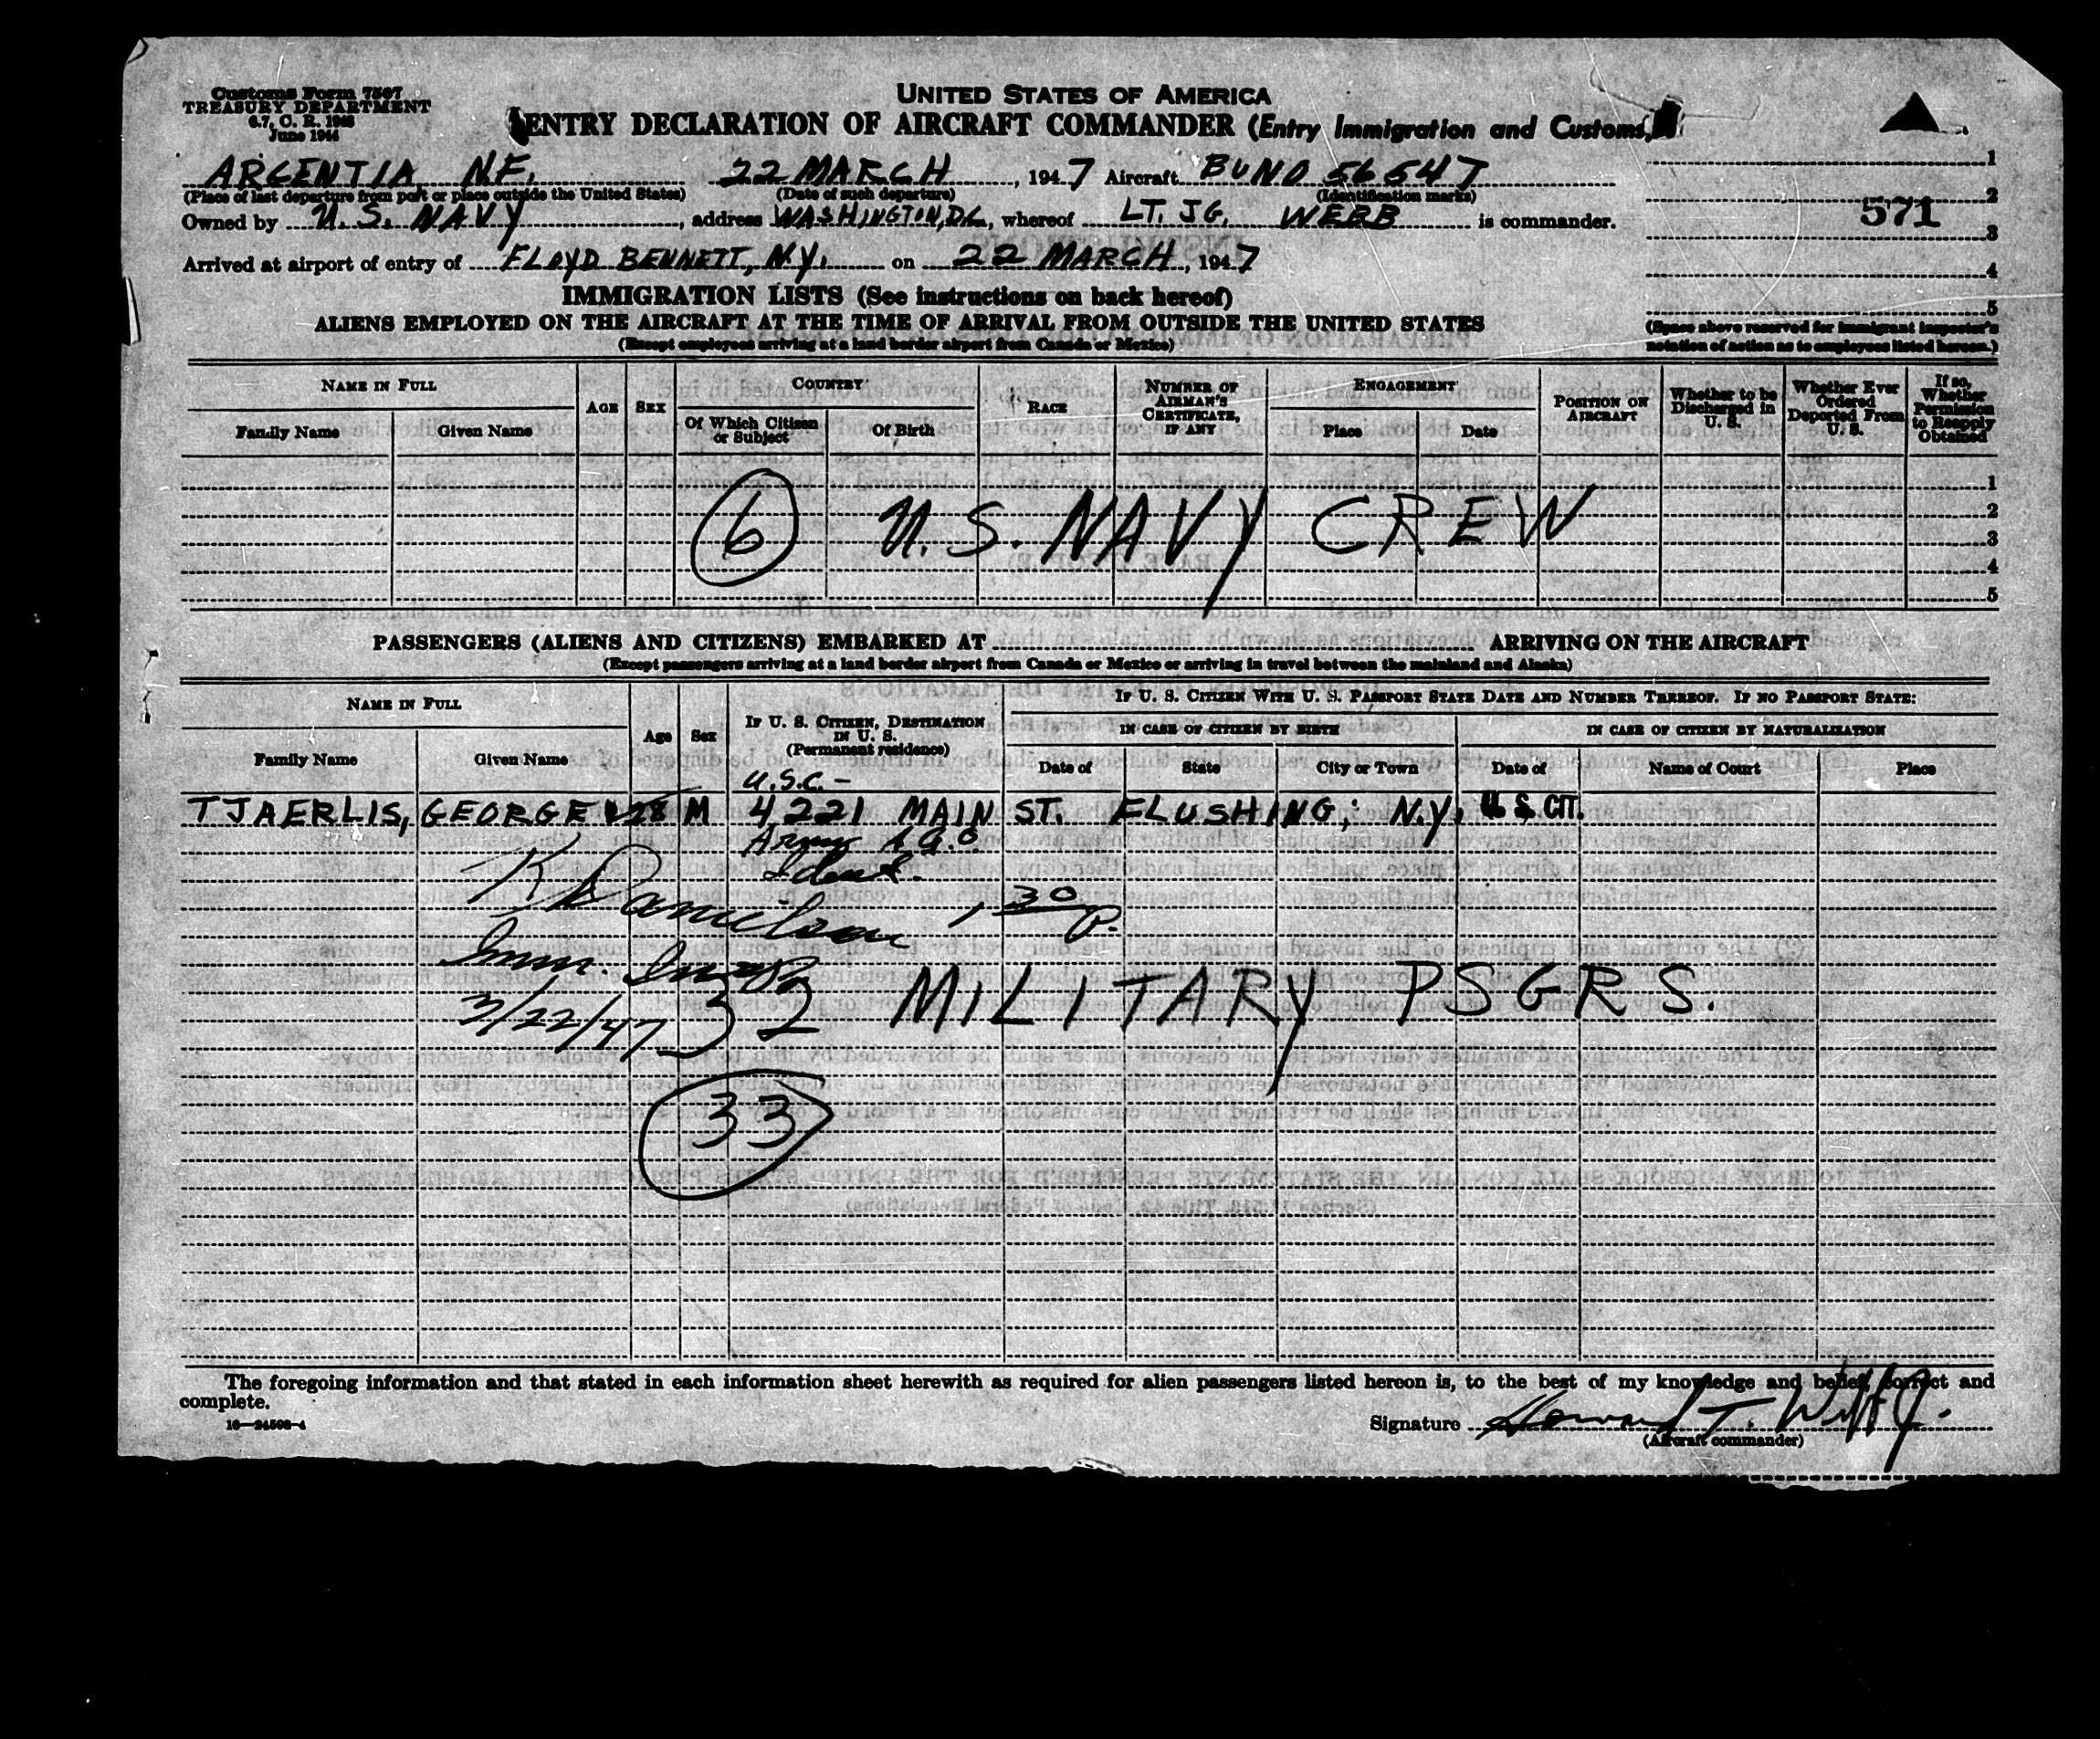 Customs Form 7507
TREASURY DEPARTMENT
6.7, C. R. 1943
June 1944
UNITED STATES OF AMERICA
ENTRY DECLARATION OF AIRCRAFT COMMANDER (Entry Immigration and Customs)
ARGENTIA, NF. 22 MARCH, 1947 Aircraft BUNO 56547
(Place of last departure from port or place outside the United States) (Date of such departure) (Identification marks)
Owned by U.S. NAVY, address WASHINGTON, D.C., whereof LT. JG. WEBB is commander.
Arrived at airport of entry of FLOYD BENNETT, N.Y. on 22 MARCH, 1947
1
2
571
3
4
5
(Space above reserved for immigrant inspector's
notation of action as to employees listed hereon.)
IMMIGRATION LISTS (See instructions on back hereof)
ALIENS EMPLOYED ON THE AIRCRAFT AT THE TIME OF ARRIVAL FROM OUTSIDE THE UNITED STATES
(Except employees arriving at a land border airport from Canada or Mexico)
NAME IN FULL
Family Name
Given Name
AGE
SEX
COUNTRY
Of Which Citizen or Subject
Of Birth
RACE
NUMBER OF AIRMAN'S CERTIFICATE, IF ANY
ENGAGEMENT
Place
Date
POSITION ON AIRCRAFT
Whether to be Discharged in U. S.
Whether Ever Ordered Deported From U. S.
If so, Whether Permission to Reapply Obtained
1
2
3
4
5
6 U.S. NAVY CREW
PASSENGERS (ALIENS AND CITIZENS) EMBARKED AT ARRIVING ON THE AIRCRAFT
(Except passengers arriving at a land border airport from Canada or Mexico or arriving in travel between the mainland and Alaska)
NAME IN FULL
Family Name
Given Name
Age
Sex
IF U. S. CITIZEN, DESTINATION IN U. S.
(Permanent residence)
IF U. S. CITIZEN WITH U. S. PASSPORT STATE DATE AND NUMBER THEREOF. IF NO PASSPORT STATE:
IN CASE OF CITIZEN BY BIRTH
IN CASE OF CITIZEN BY NATURALIZATION
Date of
State
City or Town
Date of
Name of Court
Place
U.S.C. -
TJAERLIS, GEORGE 28 M 4221 MAIN ST. FLUSHING; N.Y. U S CIT.
Army A.G.O.
Ident.
K Danielson, 30 P.
Imm. Insp
3/22/47
32 MILITARY PSGRS.
33
The foregoing information and that stated in each information sheet herewith as required for alien passengers listed hereon is, to the best of my knowledge and belief, correct and
complete.
16—24598-4
Signature Howard T. Webb Jr.
(Aircraft commander)